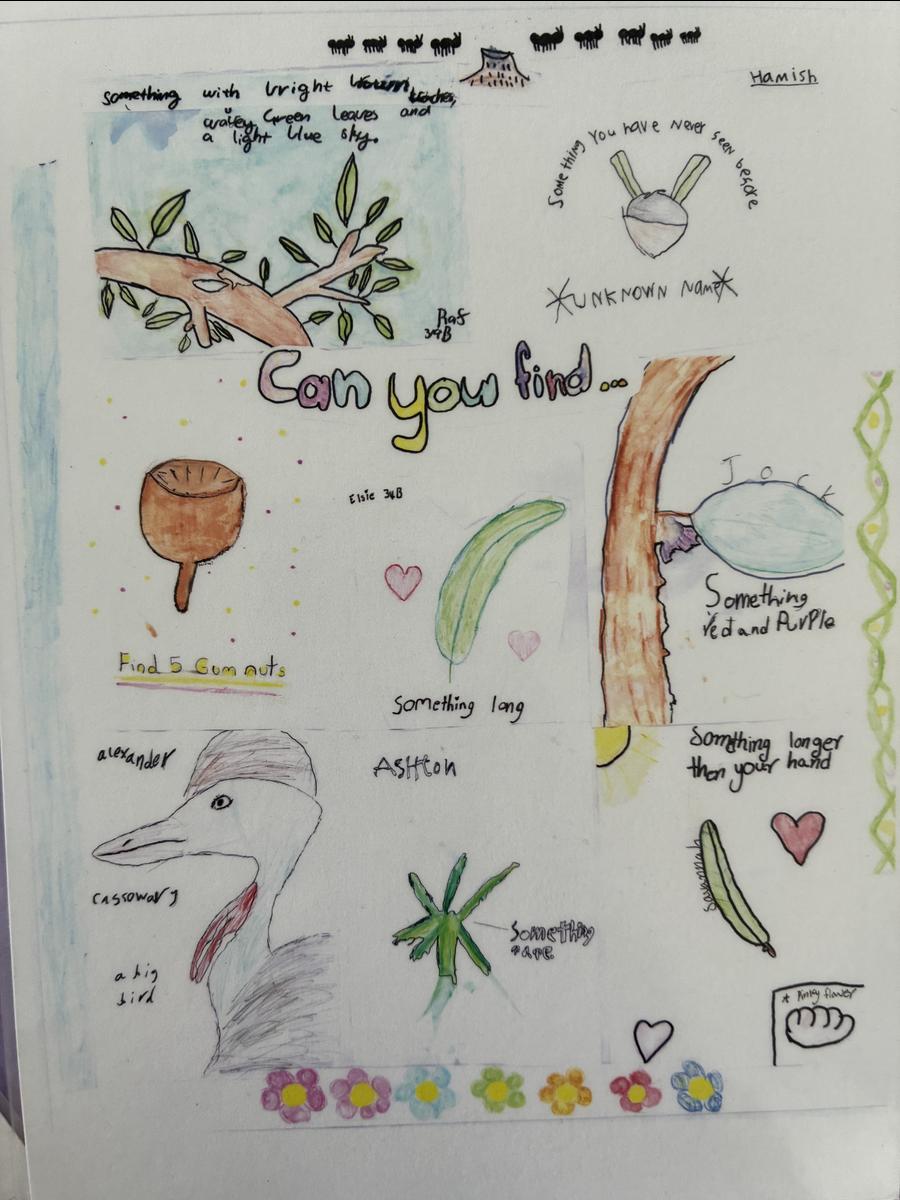 Something with bright brown branches,
wavey Green leaves and
a light blue sky.
Raf
3/4B
Hamish
Something you have never seen before
*UNKNOWN Name*
Can you find...
Find 5 Gum nuts
Elsie 3/4B
Something long
Jock
Something
red and PurPle
alexander
cassowary
a big
bird
ASHton
Something
rare
Something longer
then your hand
Savannah
* Pinky flower